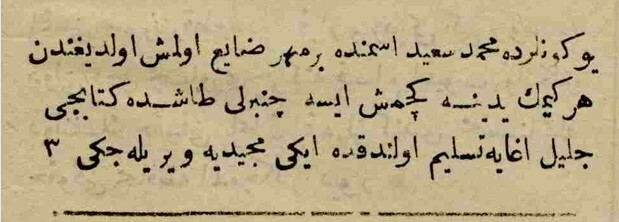 بو كونلرده محمد سعيد اسمنده بر مهر ضايع اولمش اولديغندن
هر كيمك يدينه كچمش ايسه چنبرلى طاشده كتابجى
جليل اغايه تسليم اولندقده ايكى مجيديه ويريله جكى ٣